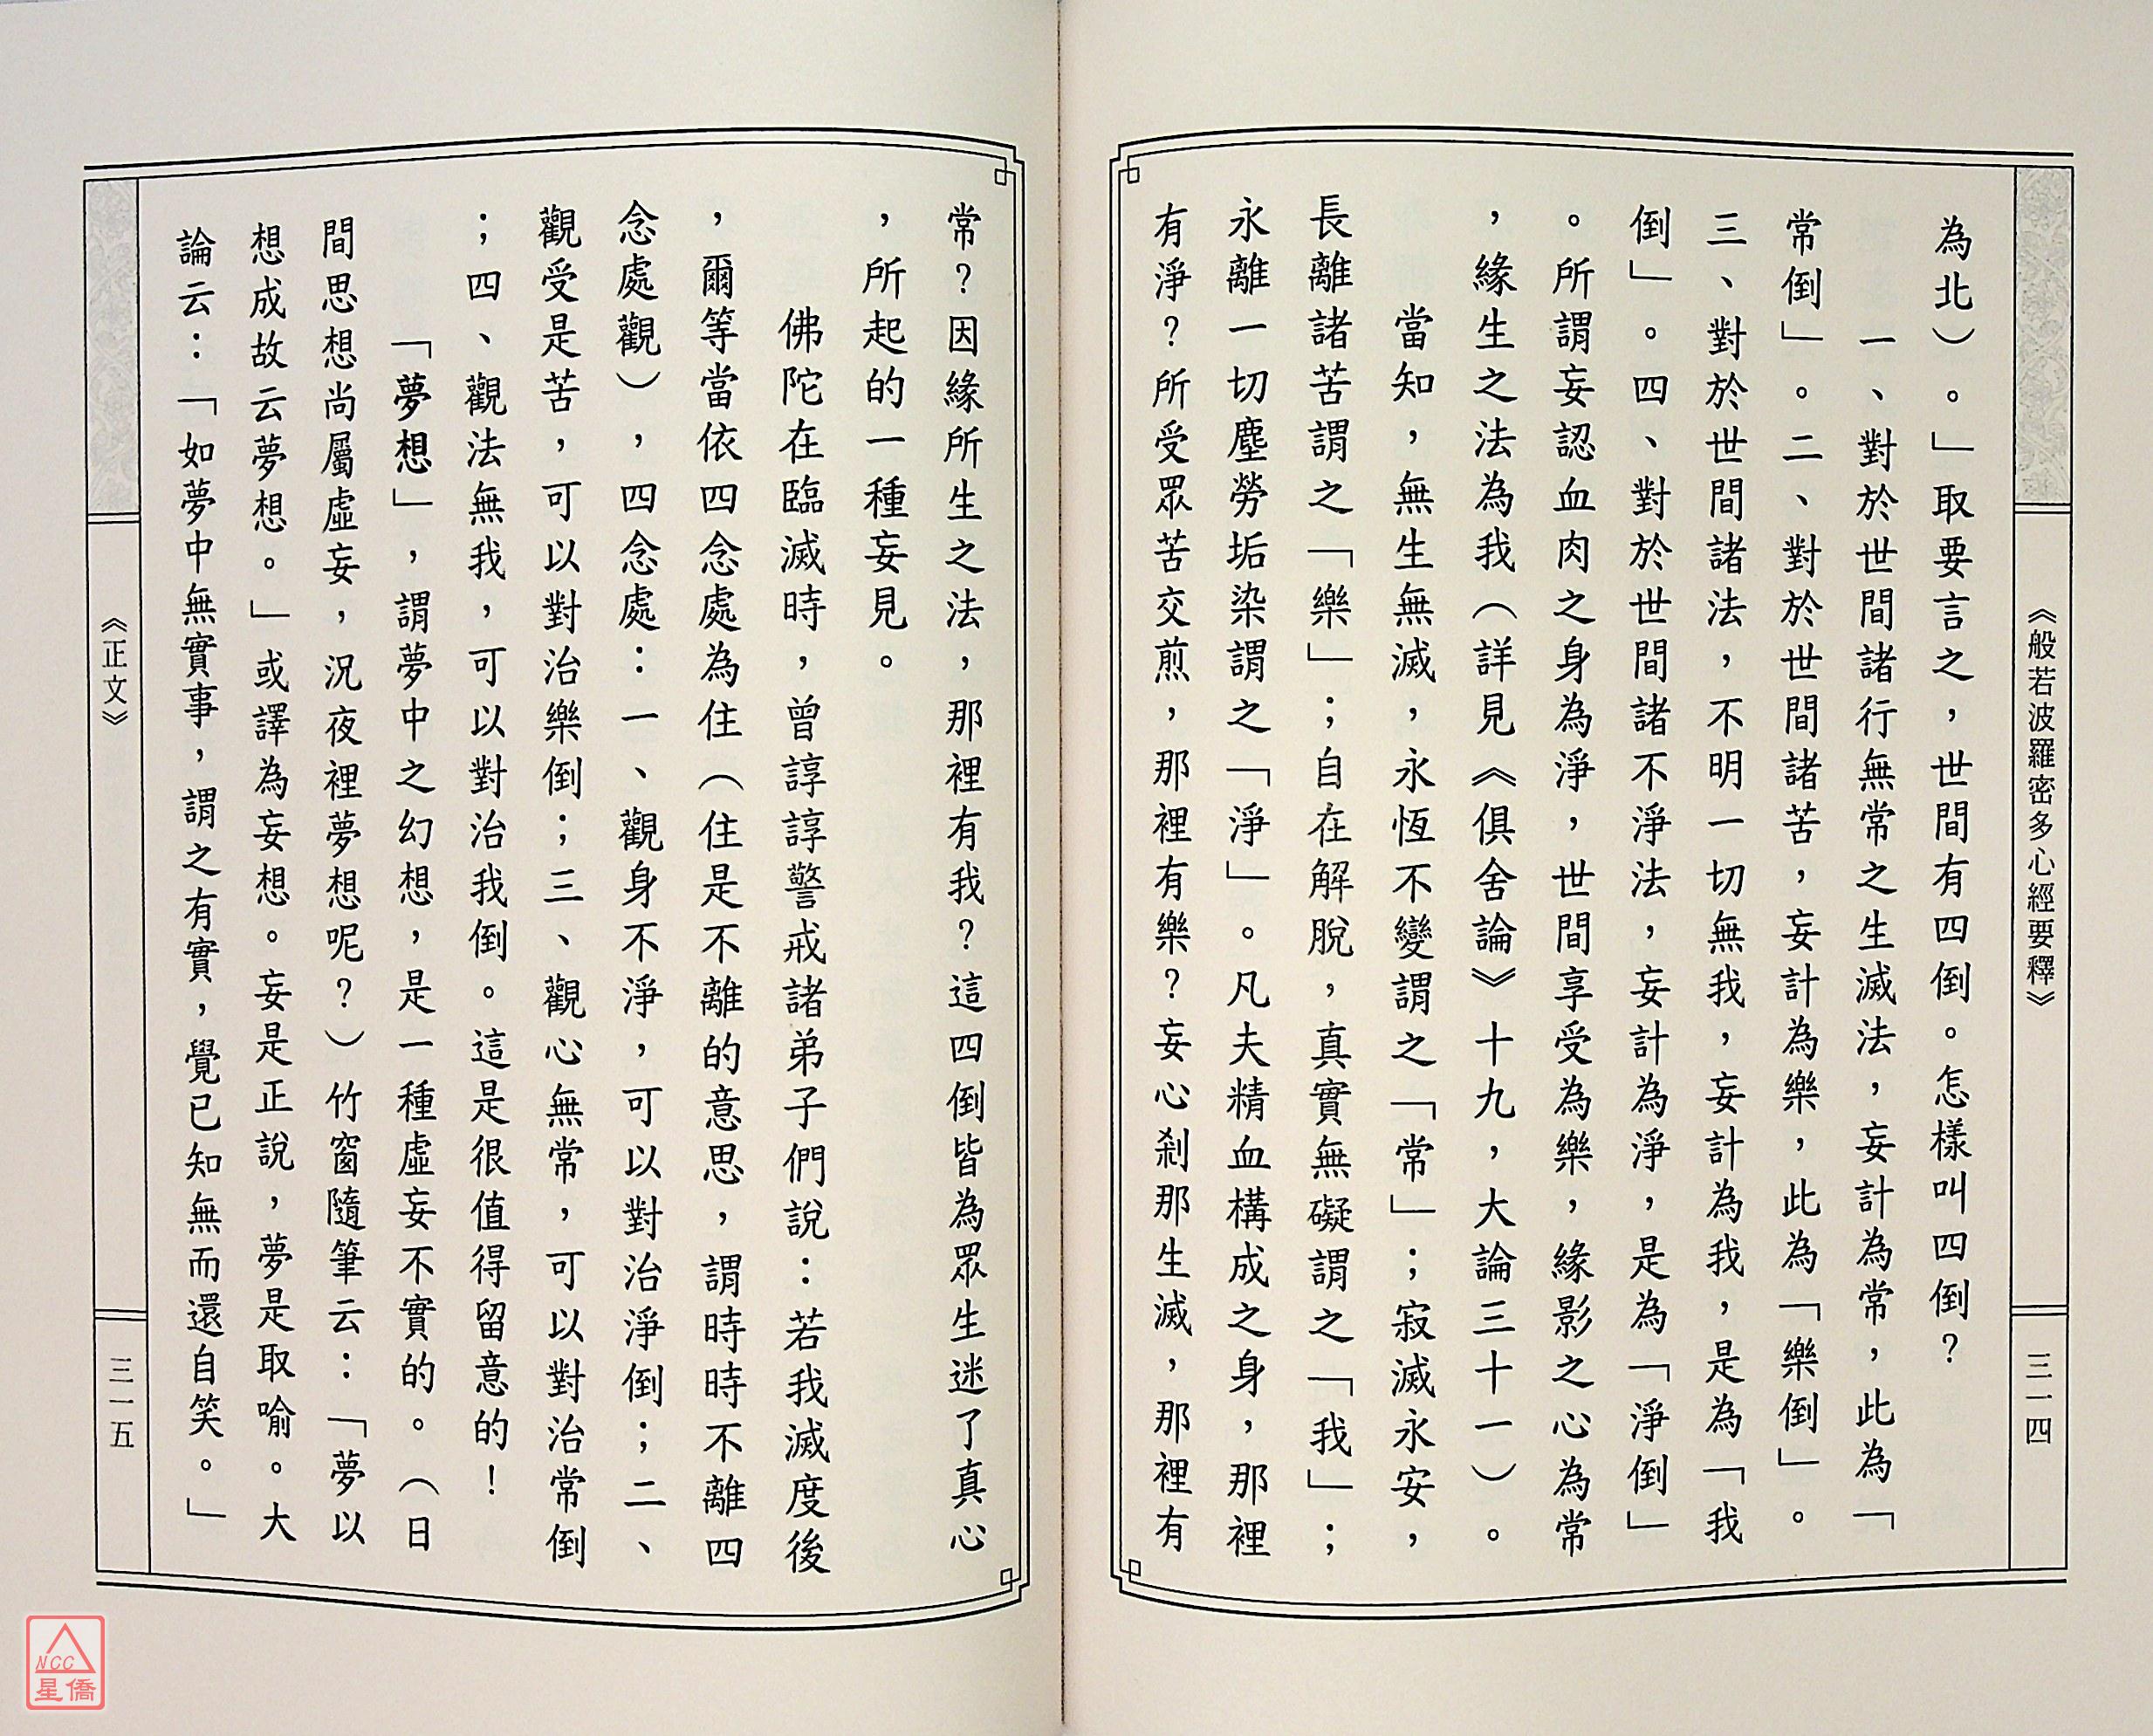 《般若波羅密多心經要釋》
三一四
為北）。」取要言之，世間有四倒。怎樣叫四倒？
一、對於世間諸行無常之生滅法，妄計為常，此為「
常倒」。二、對於世間諸苦，妄計為樂，此為「樂倒」。
三、對於世間諸法，不明一切無我，妄計為我，是為「我
倒」。四、對於世間諸不淨法，妄計為淨，是為「淨倒」
。所謂妄認血肉之身為淨，世間享受為樂，緣影之心為常
，緣生之法為我（詳見《俱舍論》十九，大論三十一）。
當知，無生無滅，永恆不變謂之「常」；寂滅永安，
長離諸苦謂之「樂」；自在解脫，真實無礙謂之「我」；
永離一切塵勞垢染謂之「淨」。凡夫精血構成之身，那裡
有淨？所受眾苦交煎，那裡有樂？妄心剎那生滅，那裡有
常？因緣所生之法，那裡有我？這四倒皆為眾生迷了真心
，所起的一種妄見。
佛陀在臨滅時，曾諄諄警戒諸弟子們說：若我滅度後
，爾等當依四念處為住（住是不離的意思，謂時時不離四
念處觀），四念處：一、觀身不淨，可以對治淨倒；二、
觀受是苦，可以對治樂倒；三、觀心無常，可以對治常倒
；四、觀法無我，可以對治我倒。這是很值得留意的！
「夢想」，謂夢中之幻想，是一種虛妄不實的。（日
間思想尚屬虛妄，況夜裡夢想呢？）竹窗隨筆云：「夢以
想成故云夢想。」或譯為妄想。妄是正說，夢是取喻。大
論云：「如夢中無實事，謂之有實，覺已知無而還自笑。」
《正文》
三一五
NCC
星僑